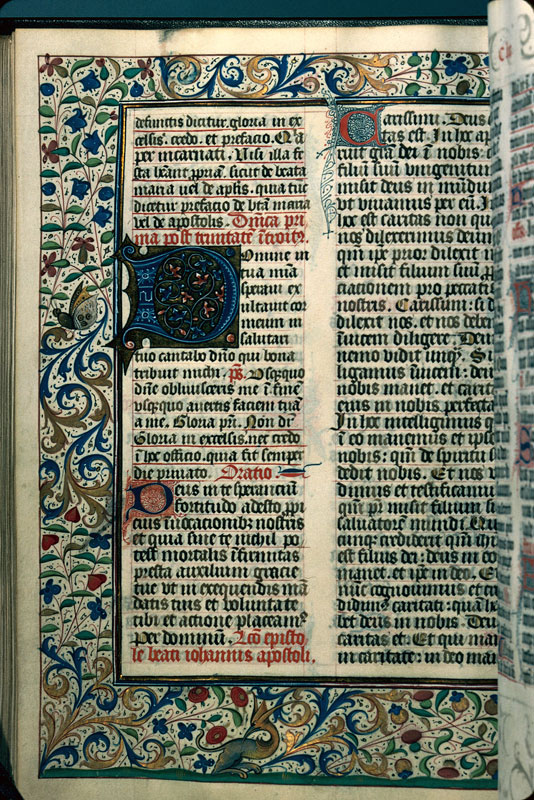 defunctis dicitur. gloria in ex
celsis. credo. et prefacio. Q̄a
per incarnati. Nisi illa fe
sta beāt̄ ꝓpriā. sicut de beata
maria uel de apl̄is. quia tūc
dicetur prefacio de btā̄ maria
vel de apostolis. Dn̄ica pri
ma post trinitatē ītroit̄.
Domine in
tua mīa
speraui ex
ultauit cor
meum in
salutari
tuo cantabo dn̄o qui bona
tribuit michi. p̄s. Vsquequo
dn̄e obliuisceris me ī finē
vsq̄quo auertis faciem tuā
a me. Gloria pr̄i. Non dr̄
Gloria in excelsis. nec credo
ī hoc officio. quia fit semper
die priuato. Oratio.
Deus in te sperantiū
fortitudo adesto ꝓpi
cius īuocationibꝫ nostris
et quia sine te nichil po
test mortalis īfirmitas
presta auxilium gracie
tue vt in exequendis mā
datis tuis et voluntate
tibi et actione placeamꝰ
per dominum. Lc̄o episto
le beati iohannis apostoli.
Carissimi. Deus c
tas est. In hoc ap
ruit
filiū suū vnigenitum
misit deus in mundū
vt viuamus per eū. In
hoc est caritas non qua
nos dilexerimus deum
qm̄ ipe prior dilexit n
et misit filium suū ꝓp
ciationem pro peccati
nostris. Carissimi: si d
dilexit nos. et nos debe
īuicem diligere. Deu
nemo vidit unq̄. Si
ligamus īuicem: deu
nobis manet. et carit
eius in nobis perfecta
In hoc intelligimus q
ī eo manemus et ipse
nobis: qm̄ de spiritu s
dedit nobis. Et nos v
dimus et testificamu
qm̄ pr̄ misit filium su
saluatorē mundi. Qui
cunq̄ crediderit qm̄ ih̄s
est filius dei: deus in eo
manet. et ipe in deo. E
nos cognouimus et cr
didimꝰ caritati: quā h
bet deus in nobis. Deu
caritas est. Et qui man
in caritate: in deo man